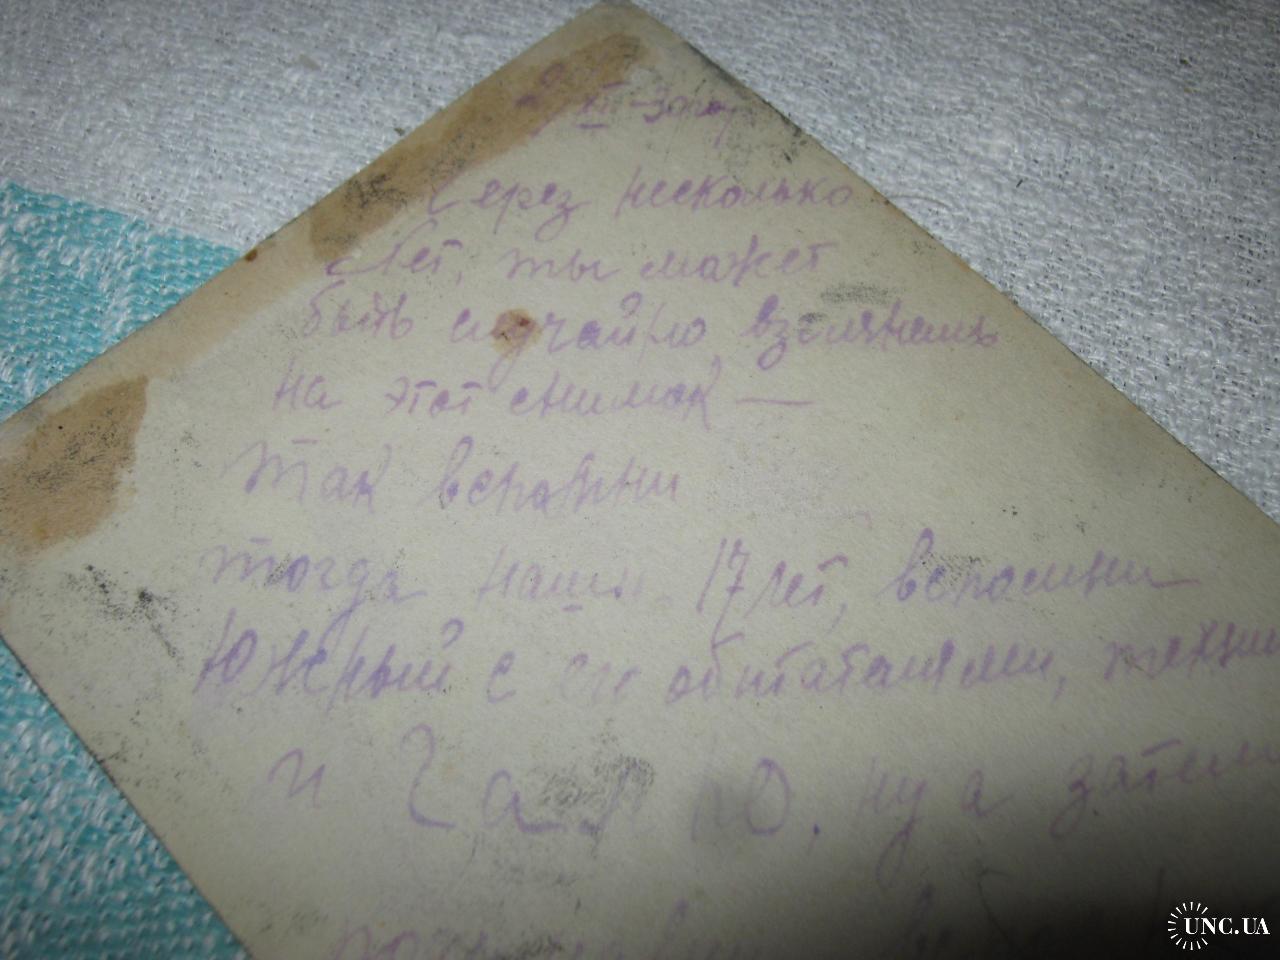 XII-30 год
Через несколько
Лет, ты может
быть случайно, взглянешь
на этот снимок —
Так вспомни
тогда наши 17 лет, вспомни
Южный с его обитателями,
и ну а затем
UNC.UA